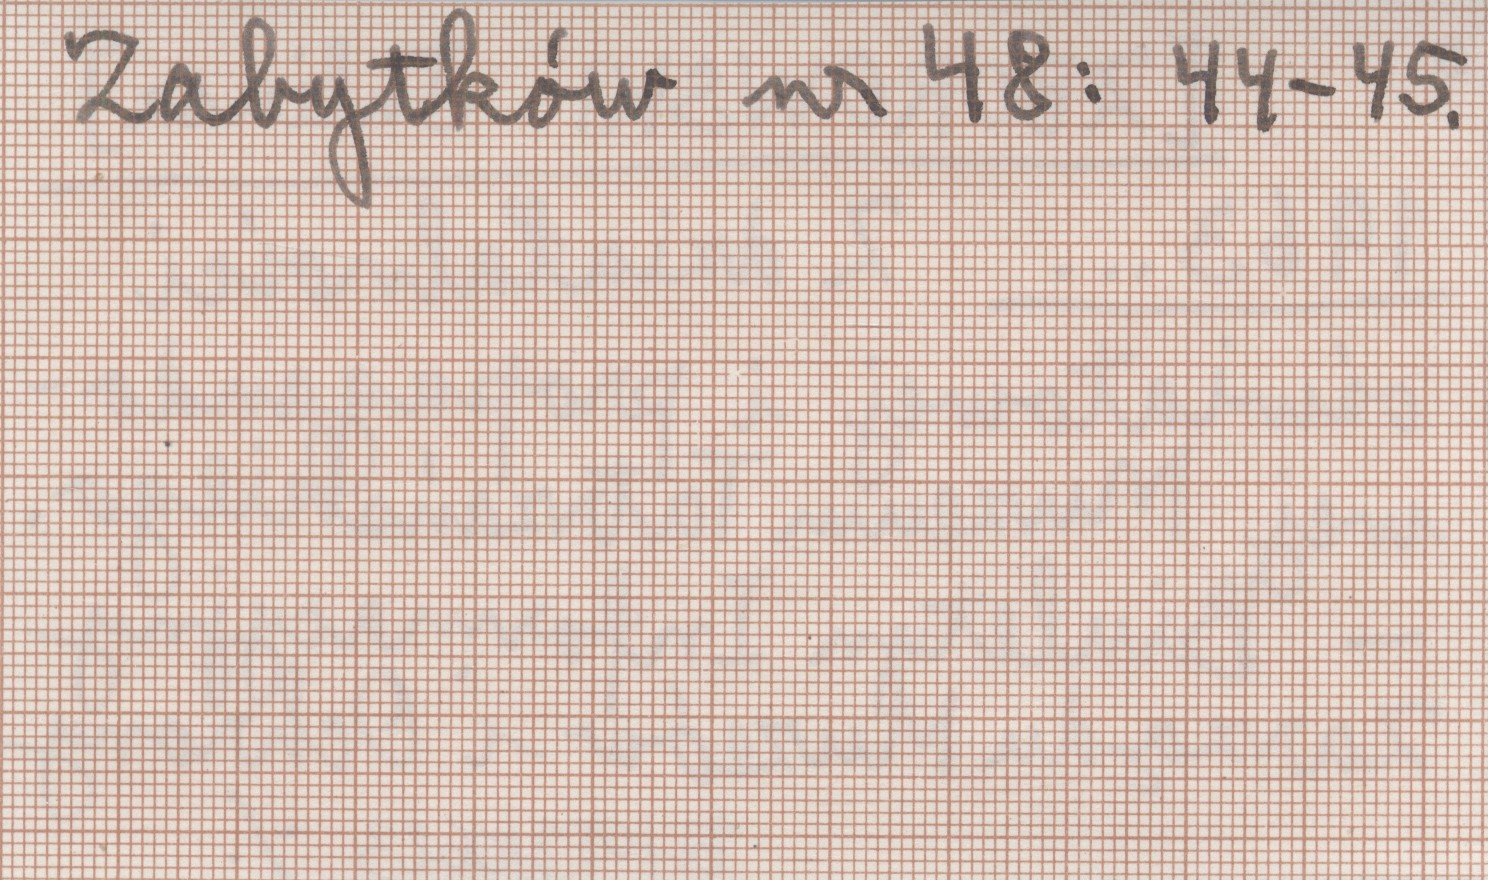 Zabytków nr 48: 44-45.